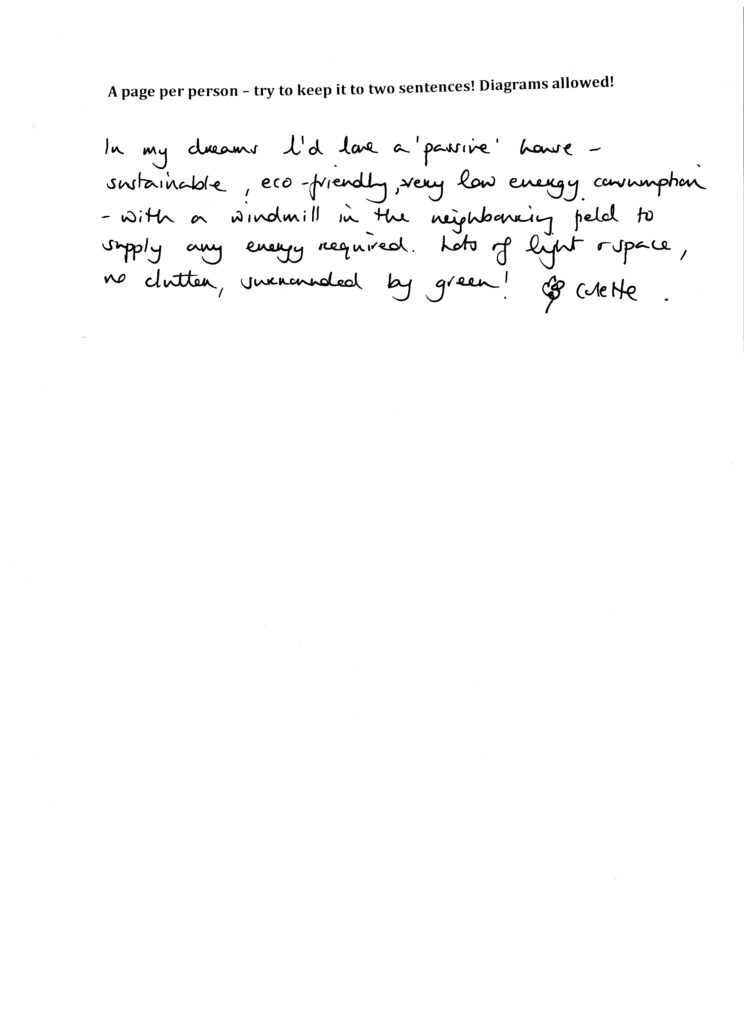 A page per person – try to keep it to two sentences! Diagrams allowed!
In my dreams I'd love a 'passive' house –
sustainable, eco-friendly, very low energy consumption
- with a windmill in the neighbouring field to
supply any energy required. Lots of light & space,
no clutter, surrounded by green! Colette.